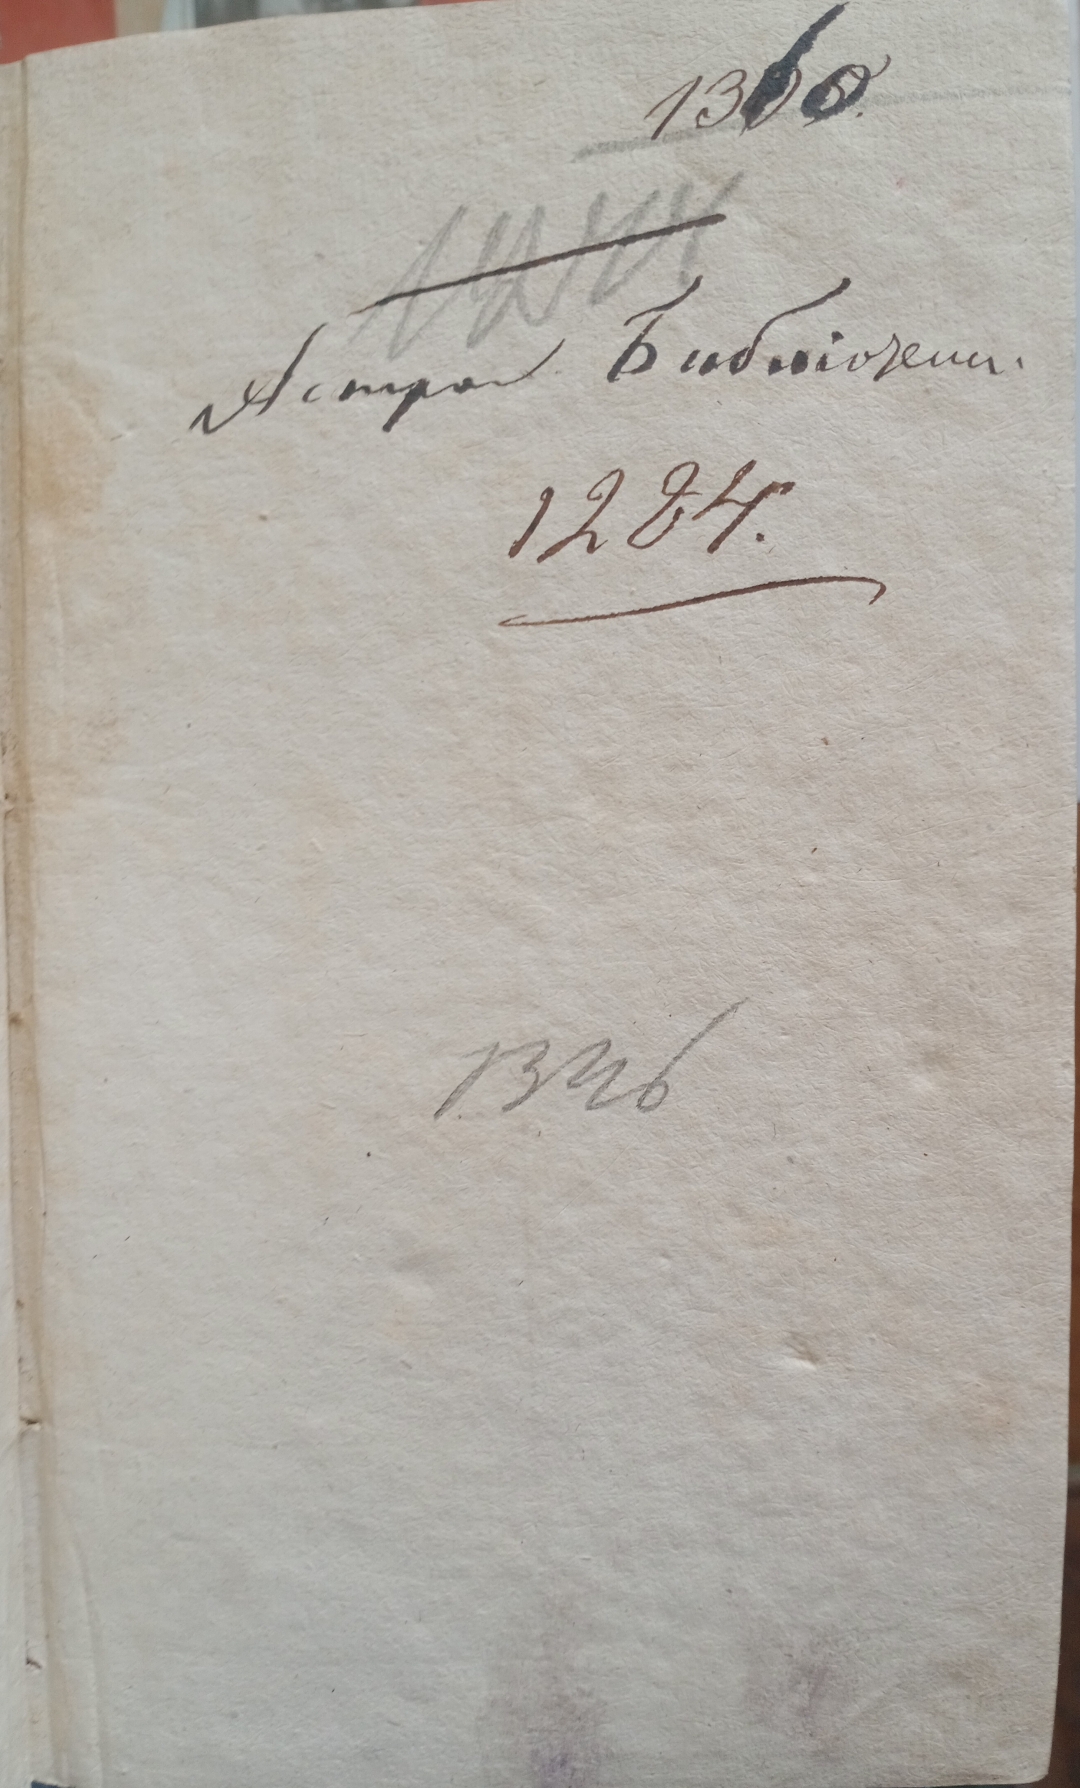 1360.
Астрах Библіотеки.
1284.
1346